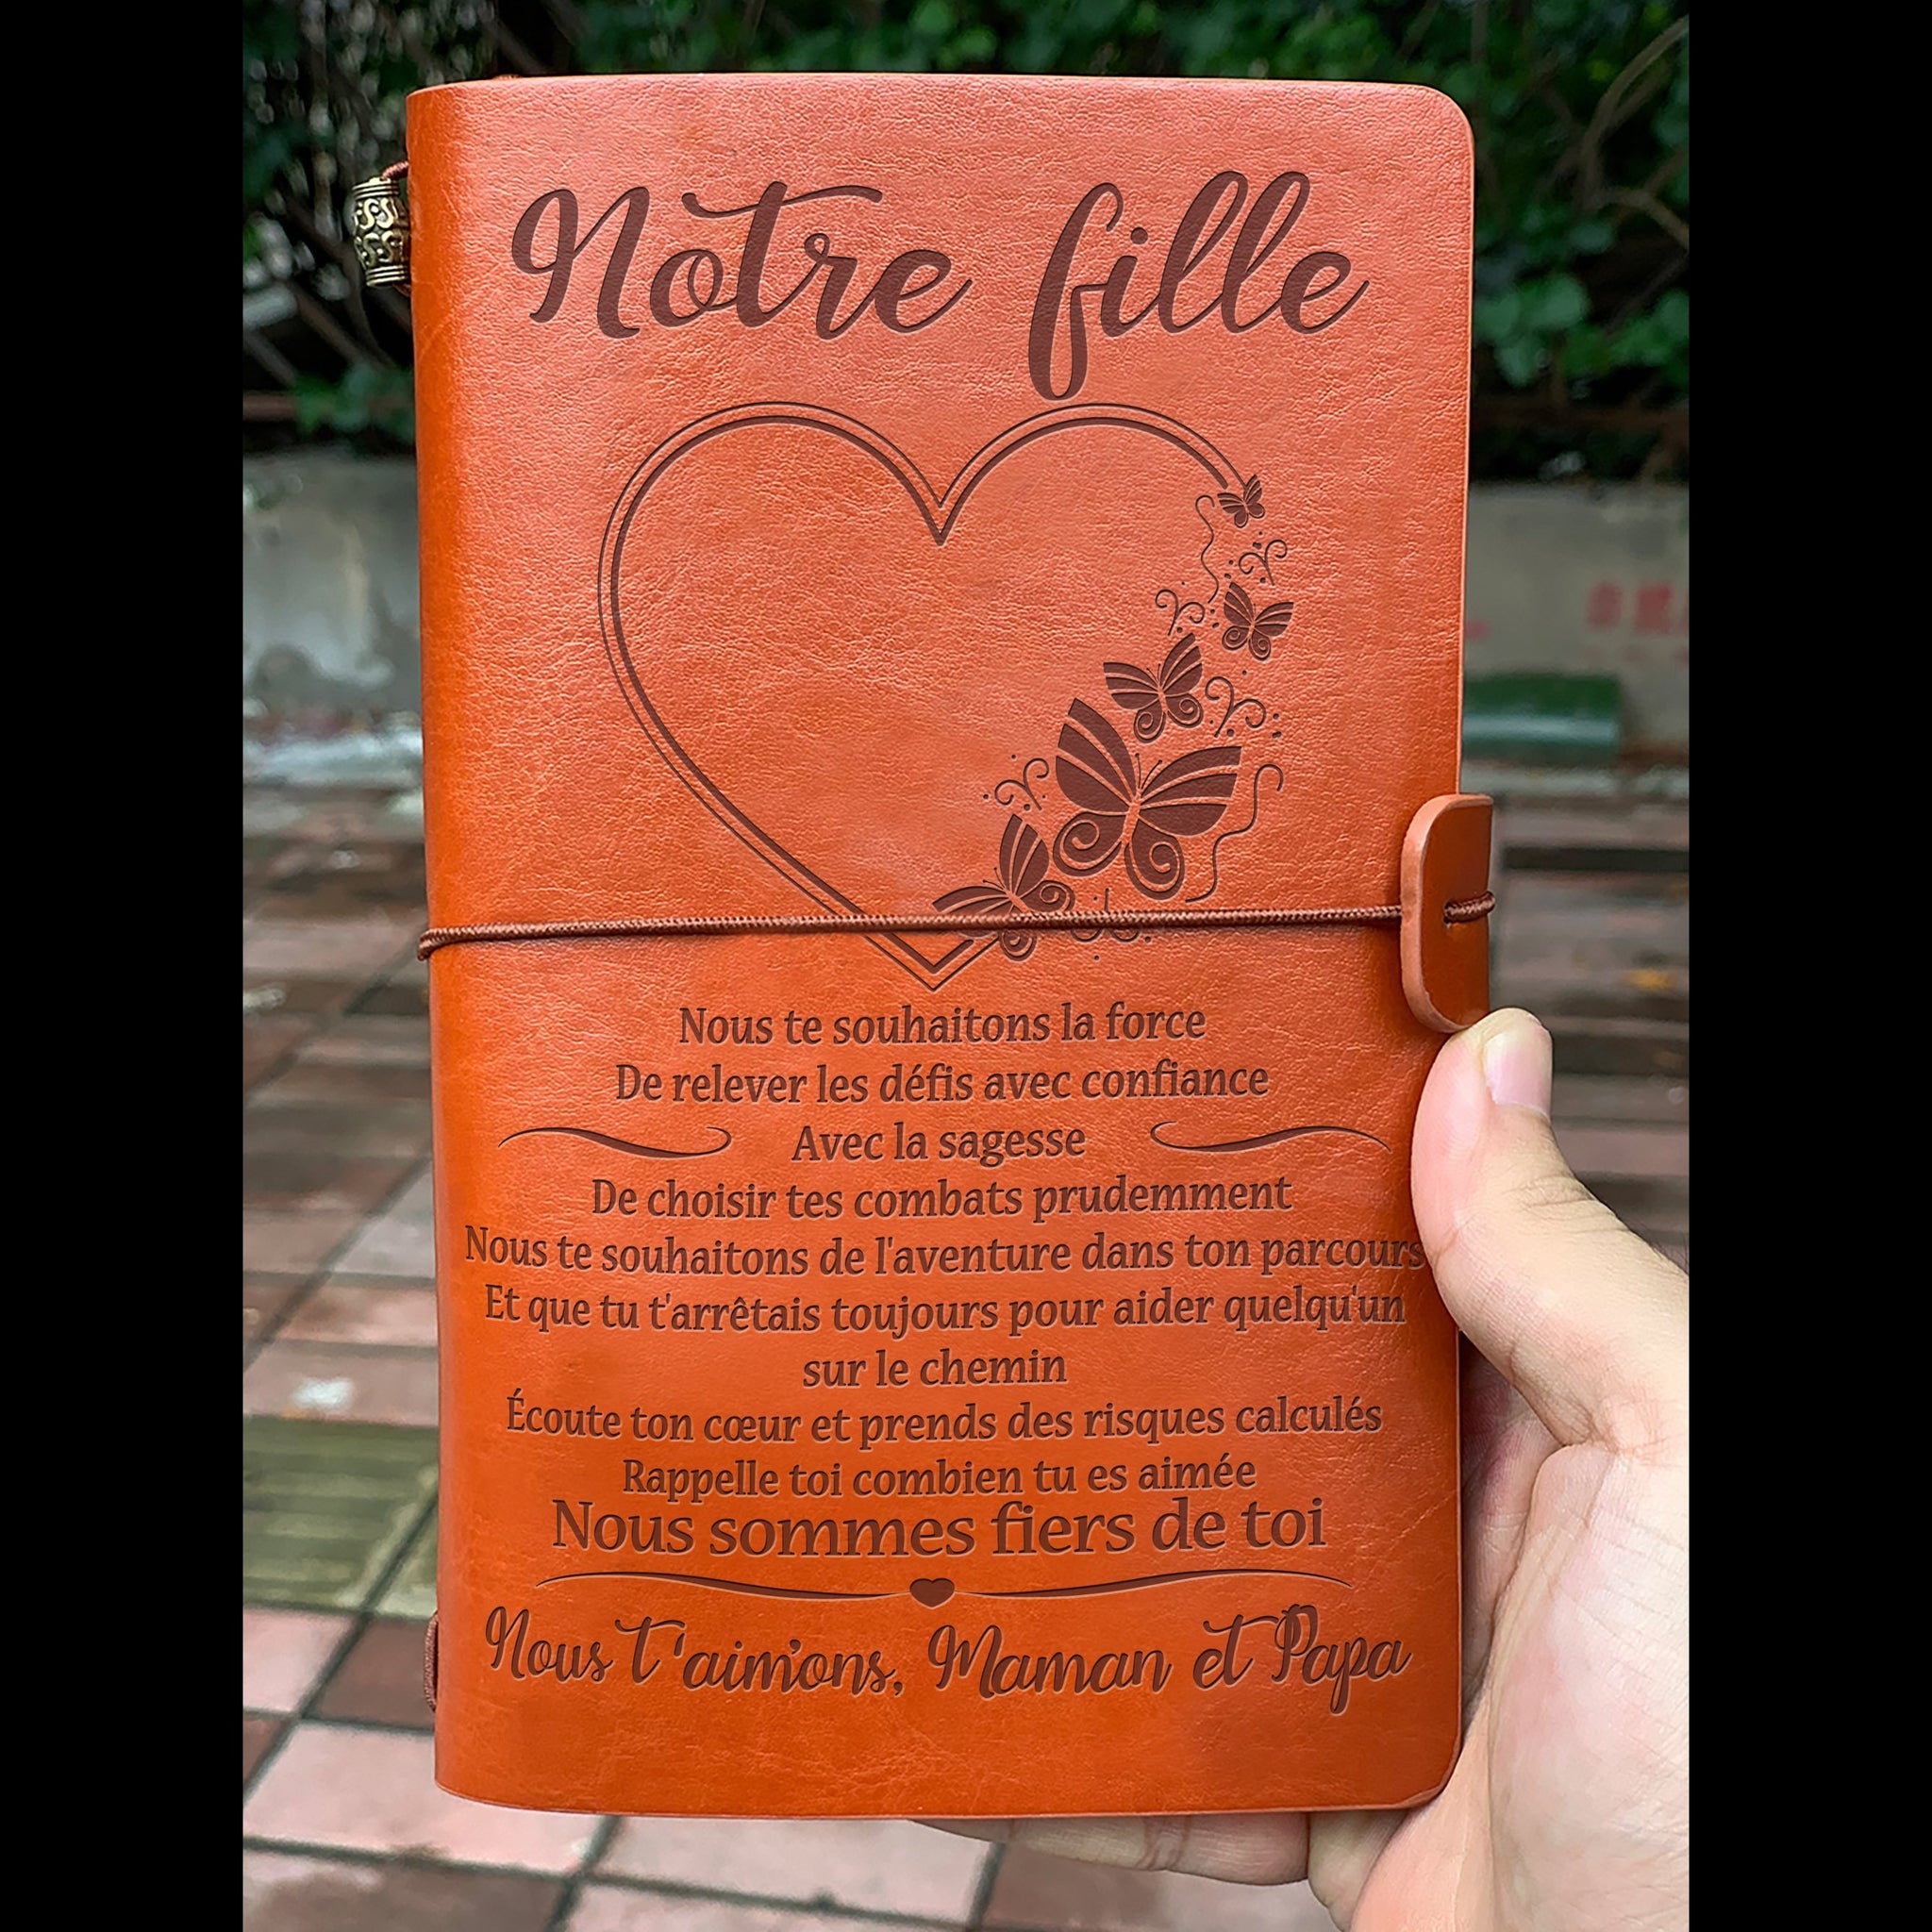 Notre fille
Nous te souhaitons la force
De relever les défis avec confiance
Avec la sagesse
De choisir tes combats prudemment
Nous te souhaitons de l'aventure dans ton parcours
Et que tu t'arrêtais toujours pour aider quelqu'un
sur le chemin
Écoute ton cœur et prends des risques calculés
Rappelle toi combien tu es aimée
Nous sommes fiers de toi
Nous t'aim'ons, Maman et Papa